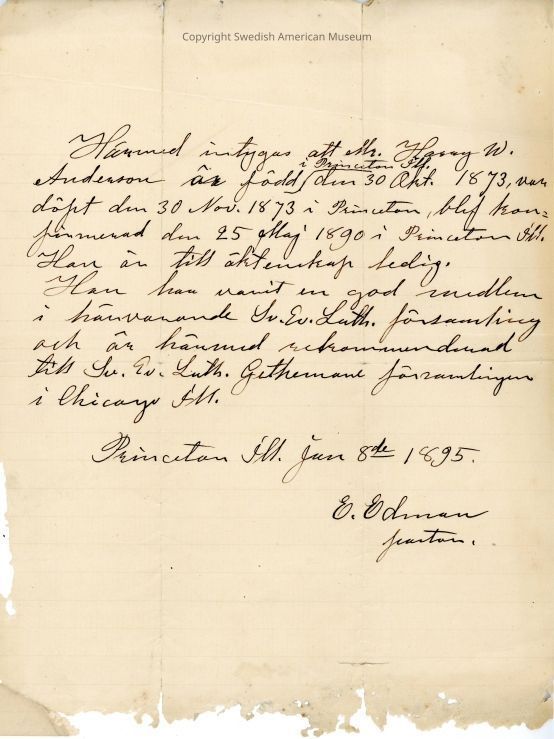 Copyright Swedish American Museum
Härmed intygas att Mr. Harry W.
i Princeton Ill.
Anderson är född den 30 Okt. 1873, var
döpt den 30 Nov. 1873 i Princeton, blef kon=
firmerad den 25 Maj 1890 i Princeton Ill.
Han är till äktenskap ledig.
Han har varit en god medlem
i härvarande Sv. Ev. Luth. församling
och är härmed rekommenderad
till Sv. Ev. Luth. Gethemane församlingen
i Chicago Ill.
Princeton Ill. Jan 8de 1895.
E. Edman
pastor.